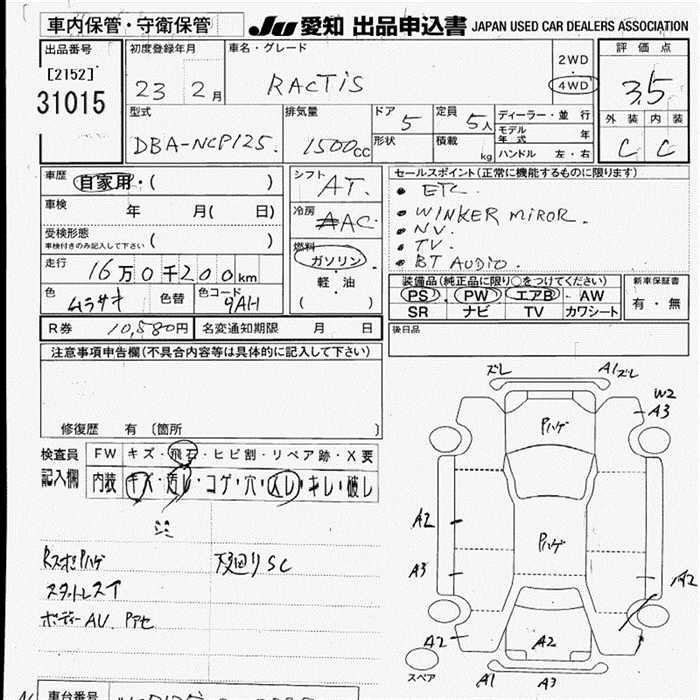 車内保管・守衛保管
JU 愛知 出品申込書 JAPAN USED CAR DEALERS ASSOCIATION
出品番号
[2152]
31015
初度登録年月
23 2月
車名・グレード
RACTIS
2WD
4WD
評価点
3.5
外装 内装
C C
型式
DBA-NCP125.
排気量
1500cc
ドア
5
形状
定員
5人
積載
kg
ディーラー・並行
モデル年式 年
ハンドル 左・右
車歴
自家用・( )
車検 年 月( 日)
受検形態
車検付きのみ記入して下さい ( )
走行
16万0千200km
色
ムラサキ
色替
色コード
9AH
R券 10,580円
名変通知期限 月 日
シフト
AT.
冷房
AAC
燃料
ガソリン
軽・油
( )
セールスポイント(正常に機能するものに限ります)
• ETC
• WINKER MIROR.
• NV.
• TV.
• BT AUDIO.
装備品(純正品に限り○をつけてください)
PS・PW・エアB・AW
SR ナビ TV カワシート
新車保証書
有・無
後日品
注意事項申告欄(不具合内容等は具体的に記入して下さい)
修復歴 有 〔箇所 〕
検査員記入欄
FW キズ・飛石・ヒビ割・リペア跡・X要
内装 キズ・汚レ・コゲ・穴・スレ・キレ・破し
RスポPハゲ
下廻りSC
スタットレス丁
ボディーAU. Pアセ
ズレ
A1ズレ
W2
A3
Pハゲ
A2
Pハゲ
A3
A2
A2
A2
スペア
A1
A3
車台番号